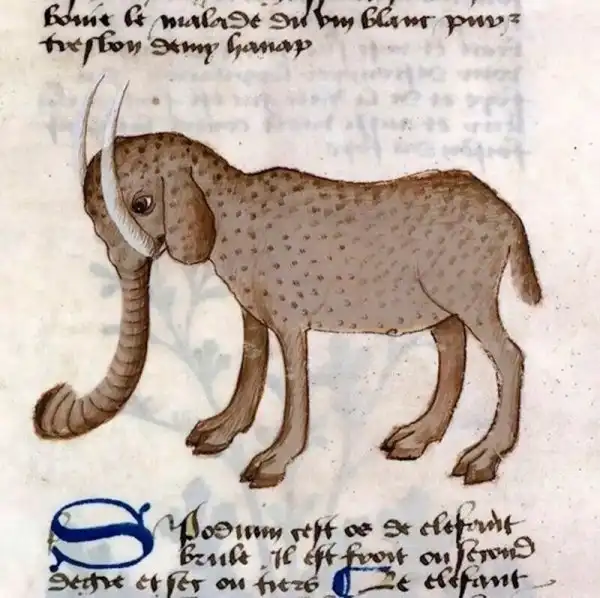 boiue le malade du vin blanc puy
tresbon demy hanap
Spodium cest os de elefant
brule. Il est froit ou second
degre et sec ou tiers Le elefant